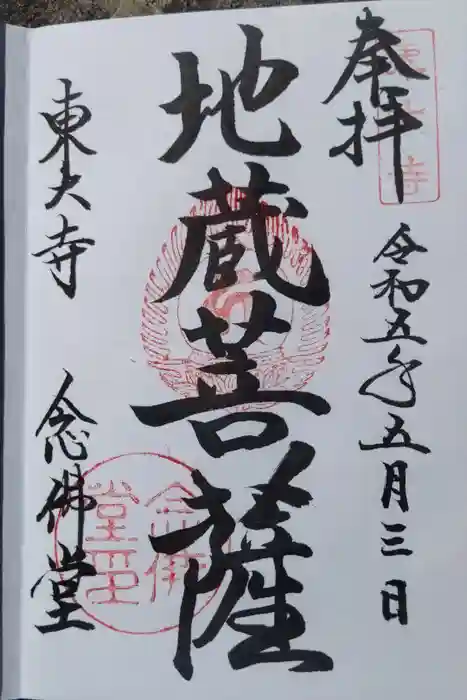 奉拝
東大寺
令和五年五月三日
地蔵菩薩
東大寺
念佛堂
念佛堂印